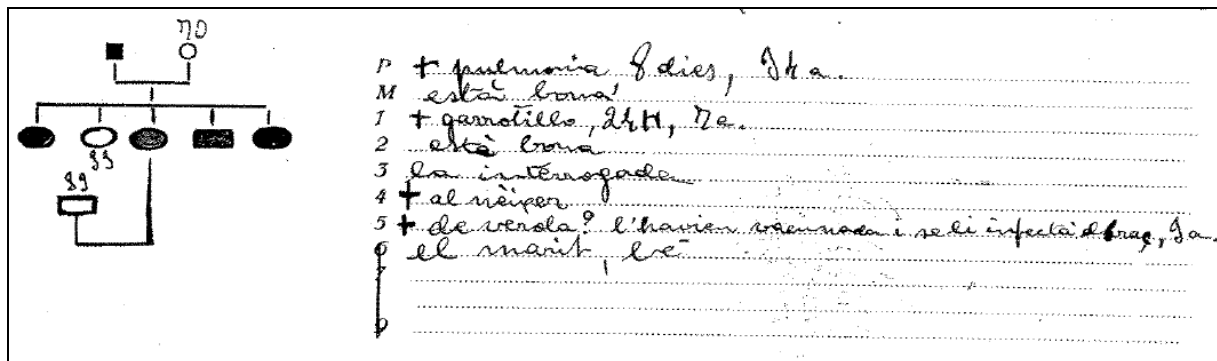 70
P + pulmonia 8 dies, a.
M està bona
1 + garrotillo, 24H, 7a.
2 està bona
3 la interrogada
4 + al nèixer
5 + de verola? l'havien vacunada i se li infectà el braç, a.
6 el marit, bé